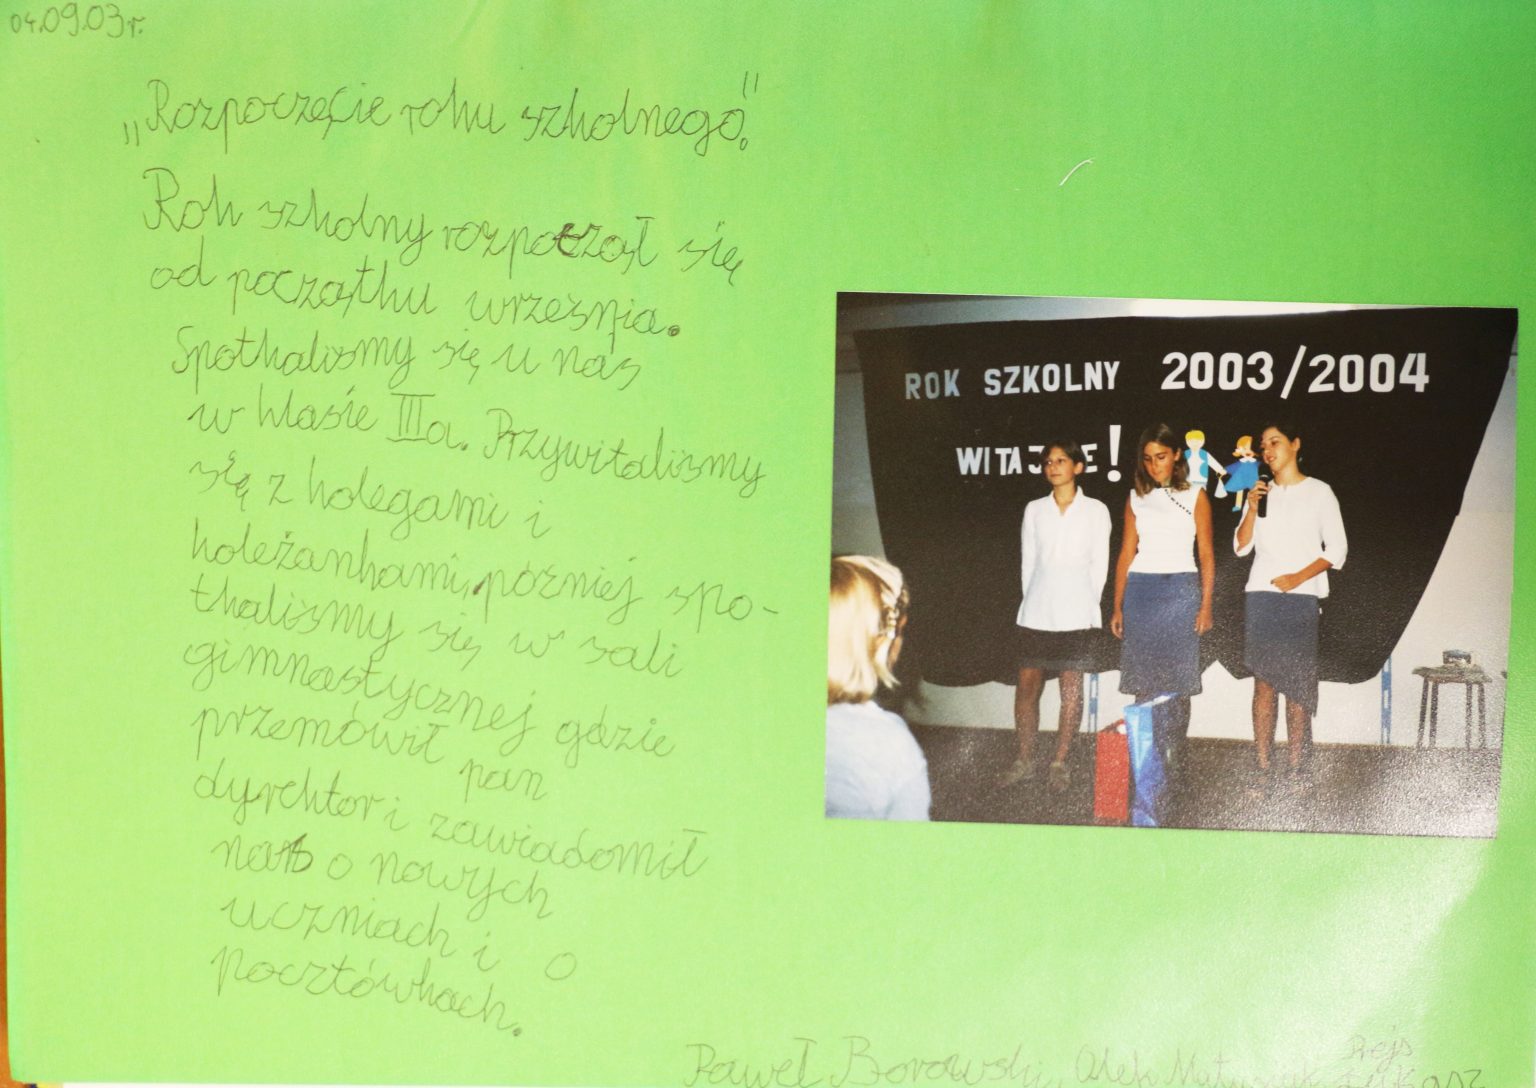 04.09.03r.
„Rozpoczęcie roku szkolnego."
Rok szkolny rozpoczął się
od początku wrzesnia.
Spotkalismy się u nas
w klasie IIIa. Przywitalismy
się z kolegami i
koleżankami, pózniej spo-
tkalismy się w sali
gimnastycznej gdzie
przemówił pan
dyrektor i zawiadomił
nas o nowych
uczniach i o
pocztówkach.
Paweł Borowski, Olek
ROK SZKOLNY 2003/2004
WITAJ E!